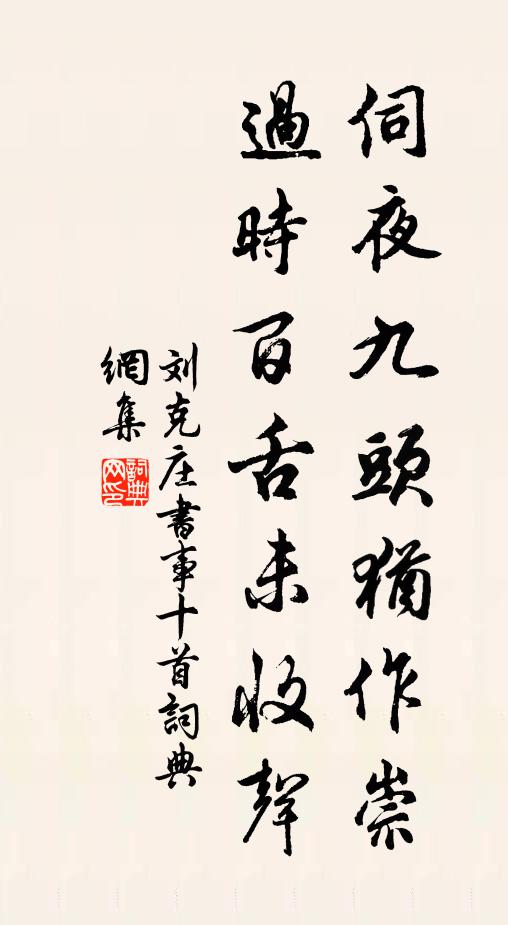 伺夜九頭猶作祟
過時百舌未收聲
刘克庄書事十首詞典
網集
詞典网印